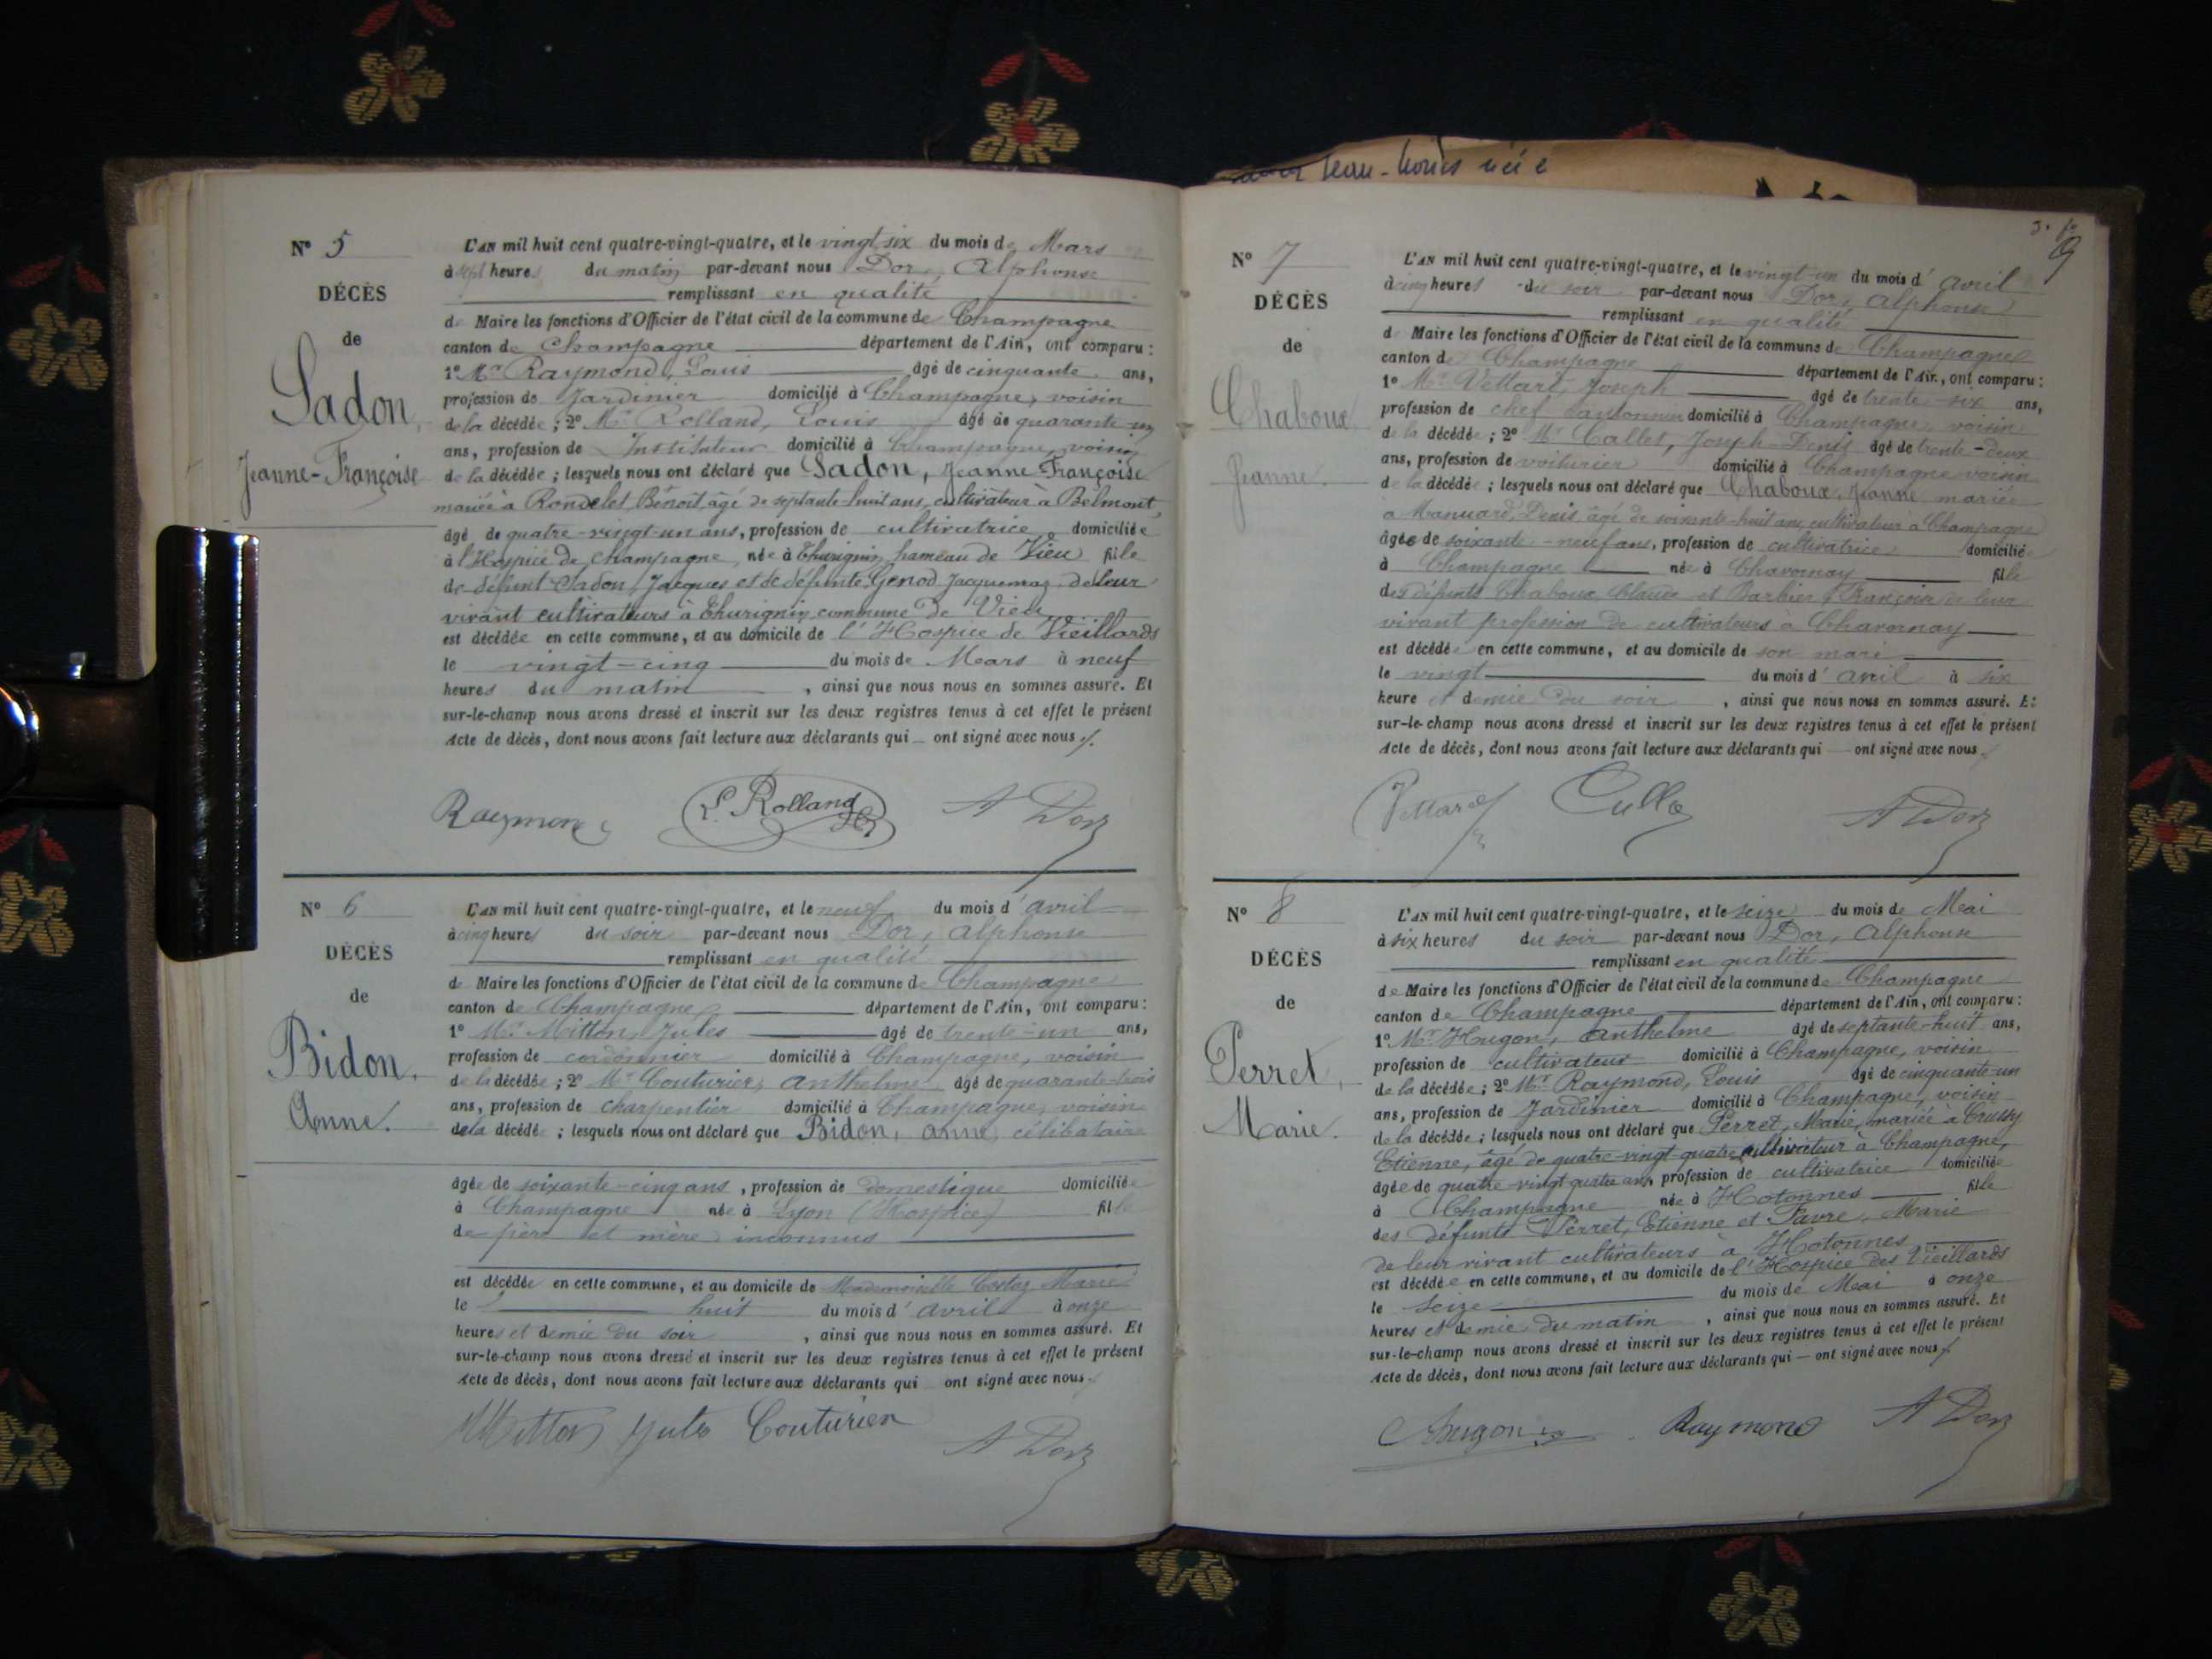 Jean-Louis née
9
N° 5
DÉCÈS
de
Sadon,
Jeanne-Françoise
L'AN mil huit cent quatre-vingt-quatre, et le vingt six du mois de Mars
à sept heures du matin par-devant nous Dor, Alphonse
remplissant en qualité
de Maire les fonctions d'Officier de l'état civil de la commune de Champagne
canton de Champagne département de l'Ain, ont comparu :
1° Mr Raymond, Louis âgé de cinquante ans,
profession de Jardinier domicilié à Champagne, voisin
de la décédée ; 2° Mr Rolland, Louis âgé de quarante-un
ans, profession de Instituteur domicilié à Champagne, voisin
de la décédée ; lesquels nous ont déclaré que Sadon, Jeanne Françoise
mariée à Rondelet Benoit, âgé de septante-huit ans, cultivateur à Belmont,
âgé de quatre-vingt-un ans, profession de cultivatrice domiciliée
à l'Hospice de Champagne, née à Thurignin, hameau de Vieu fille
de défunt Sadon, Jacques et de défunte Genod Jacquemaz de leur
vivant cultivateurs à Thurignin, commune de Vieu
est décédée en cette commune, et au domicile de l'Hospice de Vieillards
le vingt-cinq du mois de Mars à neuf
heures du matin, ainsi que nous nous en sommes assuré. Et
sur-le-champ nous avons dressé et inscrit sur les deux registres tenus à cet effet le présent
Acte de décès, dont nous avons fait lecture aux déclarants qui ont signé avec nous.
Raymond L. Rolland A Dor
N° 6
DÉCÈS
de
Bidon,
Anne.
L'AN mil huit cent quatre-vingt-quatre, et le neuf du mois d'avril
à cinq heures du soir par-devant nous Dor, Alphonse
remplissant en qualité
de Maire les fonctions d'Officier de l'état civil de la commune de Champagne
canton de Champagne département de l'Ain, ont comparu :
1° Mr Mitton, Jules âgé de trente-un ans,
profession de cordonnier domicilié à Champagne, voisin
de la décédée ; 2° Mr Couturier, Anthelme âgé de quarante-trois
ans, profession de charpentier domicilié à Champagne, voisin
de la décédée ; lesquels nous ont déclaré que Bidon, anne, célibataire
âgée de soixante-cinq ans, profession de domestique domiciliée
à Champagne née à Lyon (Hospice) fille
de père et mère inconnus
est décédée en cette commune, et au domicile de Mademoiselle Costaz Marie
le huit du mois d'avril à onze
heures et demie du soir, ainsi que nous nous en sommes assuré. Et
sur-le-champ nous avons dressé et inscrit sur les deux registres tenus à cet effet le présent
Acte de décès, dont nous avons fait lecture aux déclarants qui ont signé avec nous.
Mitton Jules Couturier
A Dor
N° 7
DÉCÈS
de
Chaboux
Jeanne.
L'AN mil huit cent quatre-vingt-quatre, et le vingt-un du mois d'avril
à cinq heures du soir par-devant nous Dor, Alphonse
remplissant en qualité
de Maire les fonctions d'Officier de l'état civil de la commune de Champagne
canton de Champagne département de l'Ain, ont comparu :
1° Mr Vettard, Joseph âgé de trente-six ans,
profession de chef cantonnier domicilié à Champagne, voisin
de la décédée ; 2° Mr Callet, Joseph-Denis âgé de trente-deux
ans, profession de voiturier domicilié à Champagne voisin
de la décédée ; lesquels nous ont déclaré que Chaboux, Jeanne mariée
à Manuard, Denis âgé de soixante-huit ans, cultivateur à Champagne
âgée de soixante-neuf ans, profession de cultivatrice domiciliée
à Champagne née à Chavornay fille
des défunts Chaboux, Claude et Barbier, Françoise de leur
vivant profession de cultivateurs à Chavornay
est décédée en cette commune, et au domicile de son mari
le vingt du mois d'avril à six
heure et demie du soir, ainsi que nous nous en sommes assuré. Et
sur-le-champ nous avons dressé et inscrit sur les deux registres tenus à cet effet le présent
Acte de décès, dont nous avons fait lecture aux déclarants qui ont signé avec nous
Vettard A Dor
N° 8
DÉCÈS
de
Perret,
Marie.
L'AN mil huit cent quatre-vingt-quatre, et le seize du mois de Mai
à six heures du soir par-devant nous Dor, Alphonse
remplissant en qualité
de Maire les fonctions d'Officier de l'état civil de la commune de Champagne
canton de Champagne département de l'Ain, ont comparu :
1° Mr Hugon, Anthelme âgé de septante-huit ans,
profession de cultivateur domicilié à Champagne, voisin
de la décédée ; 2° Mr Raymond, Louis âgé de cinquante-un
ans, profession de Jardinier domicilié à Champagne, voisin
de la décédée ; lesquels nous ont déclaré que Perret, Marie, mariée à
Etienne, âgé de quatre-vingt-quatre cultivateur à Champagne,
âgée de quatre-vingt quatre ans, profession de cultivatrice domiciliée
à Champagne née à Hotonnes fille
des défunts Perret, Etienne et Favre, Marie
de leur vivant cultivateurs à Hotonnes
est décédée en cette commune, et au domicile de l'Hospice des Vieillards
le seize du mois de Mai à onze
heures et demie du matin, ainsi que nous nous en sommes assuré. Et
sur-le-champ nous avons dressé et inscrit sur les deux registres tenus à cet effet le présent
Acte de décès, dont nous avons fait lecture aux déclarants qui — ont signé avec nous
Hugon Raymond A Dor